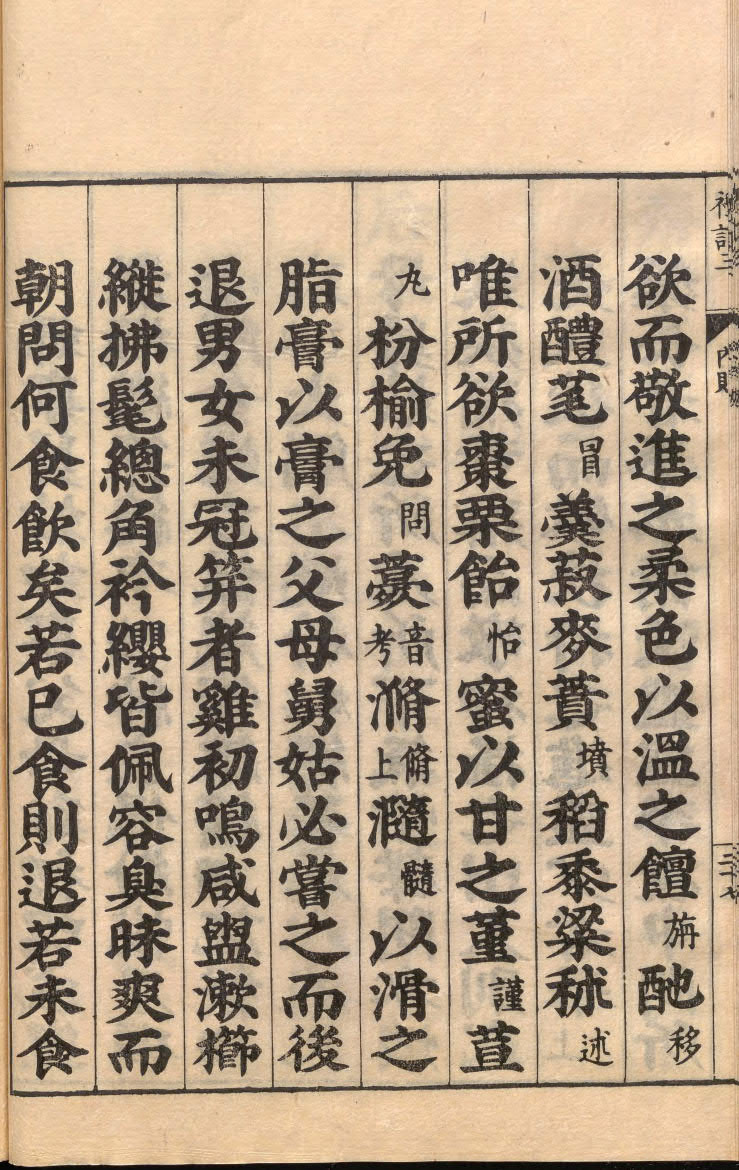 欲而敬進之柔色以溫之饘旃酏移
酒醴芼冒羹菽麥蕡墳稻黍粱秫述
唯所欲棗栗飴怡蜜以甘之菫謹荁
丸枌榆免問薧音考滫脩上瀡髓以滑之
脂膏以膏之父母舅姑必嘗之而後
退男女未冠笄者雞初鳴咸盥漱櫛
縰拂髦總角衿纓皆佩容臭昧爽而
朝問何食飲矣若已食則退若未食
內則